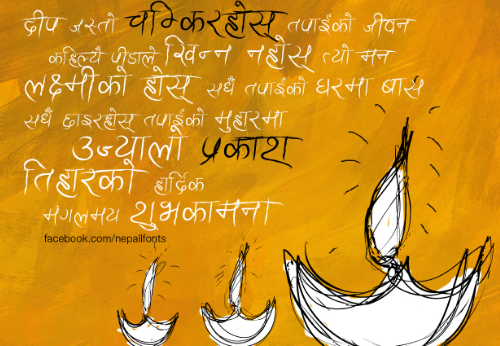 दीप जस्तो चम्किरहोस् तपाईंको जीवन
कहिल्यै पीडाले खिन्न नहोस् त्यो मन
लक्ष्मीको होस् सधैं तपाईंको घरमा बास
सधैं छाइरहोस् तपाईंको मुहारमा
उज्यालो प्रकाश
तिहारको हार्दिक
मंगलमय शुभकामना
facebook.com/nepalifonts